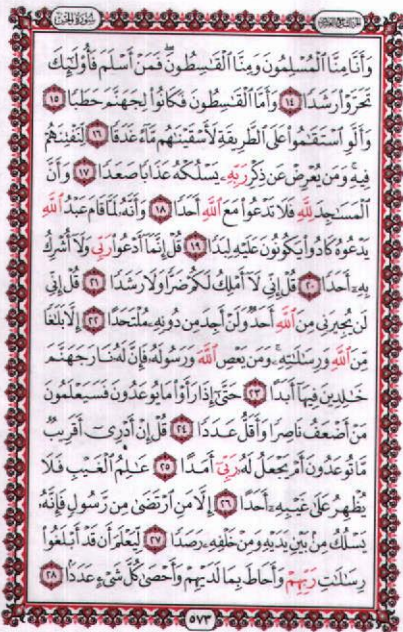 سُورَةُ الجِنِّ
وَأَنَّا مِنَّا ٱلْمُسْلِمُونَ وَمِنَّا ٱلْقَٰسِطُونَ ۖ فَمَنْ أَسْلَمَ فَأُو۟لَٰٓئِكَ
تَحَرَّوْا۟ رَشَدًا ١٤ وَأَمَّا ٱلْقَٰسِطُونَ فَكَانُوا۟ لِجَهَنَّمَ حَطَبًا ١٥
وَأَلَّوِ ٱسْتَقَٰمُوا۟ عَلَى ٱلطَّرِيقَةِ لَأَسْقَيْنَٰهُم مَّآءً غَدَقًا ١٦ لِّنَفْتِنَهُمْ
فِيهِ ۚ وَمَن يُعْرِضْ عَن ذِكْرِ رَبِّهِۦ يَسْلُكْهُ عَذَابًا صَعَدًا ١٧ وَأَنَّ
ٱلْمَسَٰجِدَ لِلَّهِ فَلَا تَدْعُوا۟ مَعَ ٱللَّهِ أَحَدًا ١٨ وَأَنَّهُۥ لَمَّا قَامَ عَبْدُ ٱللَّهِ
يَدْعُوهُ كَادُوا۟ يَكُونُونَ عَلَيْهِ لِبَدًا ١٩ قُلْ إِنَّمَآ أَدْعُوا۟ رَبِّى وَلَآ أُشْرِكُ
بِهِۦٓ أَحَدًا ٢٠ قُلْ إِنِّى لَآ أَمْلِكُ لَكُمْ ضَرًّا وَلَا رَشَدًا ٢١ قُلْ إِنِّى
لَن يُجِيرَنِى مِنَ ٱللَّهِ أَحَدٌ وَلَنْ أَجِدَ مِن دُونِهِۦ مُلْتَحَدًا ٢٢ إِلَّا بَلَٰغًا
مِّنَ ٱللَّهِ وَرِسَٰلَٰتِهِۦ ۚ وَمَن يَعْصِ ٱللَّهَ وَرَسُولَهُۥ فَإِنَّ لَهُۥ نَارَ جَهَنَّمَ
خَٰلِدِينَ فِيهَآ أَبَدًا ٢٣ حَتَّىٰٓ إِذَا رَأَوْا۟ مَا يُوعَدُونَ فَسَيَعْلَمُونَ
مَنْ أَضْعَفُ نَاصِرًا وَأَقَلُّ عَدَدًا ٢٤ قُلْ إِنْ أَدْرِىٓ أَقَرِيبٌ
مَّا تُوعَدُونَ أَمْ يَجْعَلُ لَهُۥ رَبِّىٓ أَمَدًا ٢٥ عَٰلِمُ ٱلْغَيْبِ فَلَا
يُظْهِرُ عَلَىٰ غَيْبِهِۦٓ أَحَدًا ٢٦ إِلَّا مَنِ ٱرْتَضَىٰ مِن رَّسُولٍ فَإِنَّهُۥ
يَسْلُكُ مِنۢ بَيْنِ يَدَيْهِ وَمِنْ خَلْفِهِۦ رَصَدًا ٢٧ لِّيَعْلَمَ أَن قَدْ أَبْلَغُوا۟
رِسَٰلَٰتِ رَبِّهِمْ وَأَحَاطَ بِمَا لَدَيْهِمْ وَأَحْصَىٰ كُلَّ شَىْءٍ عَدَدًۢا ٢٨
٥٧٣